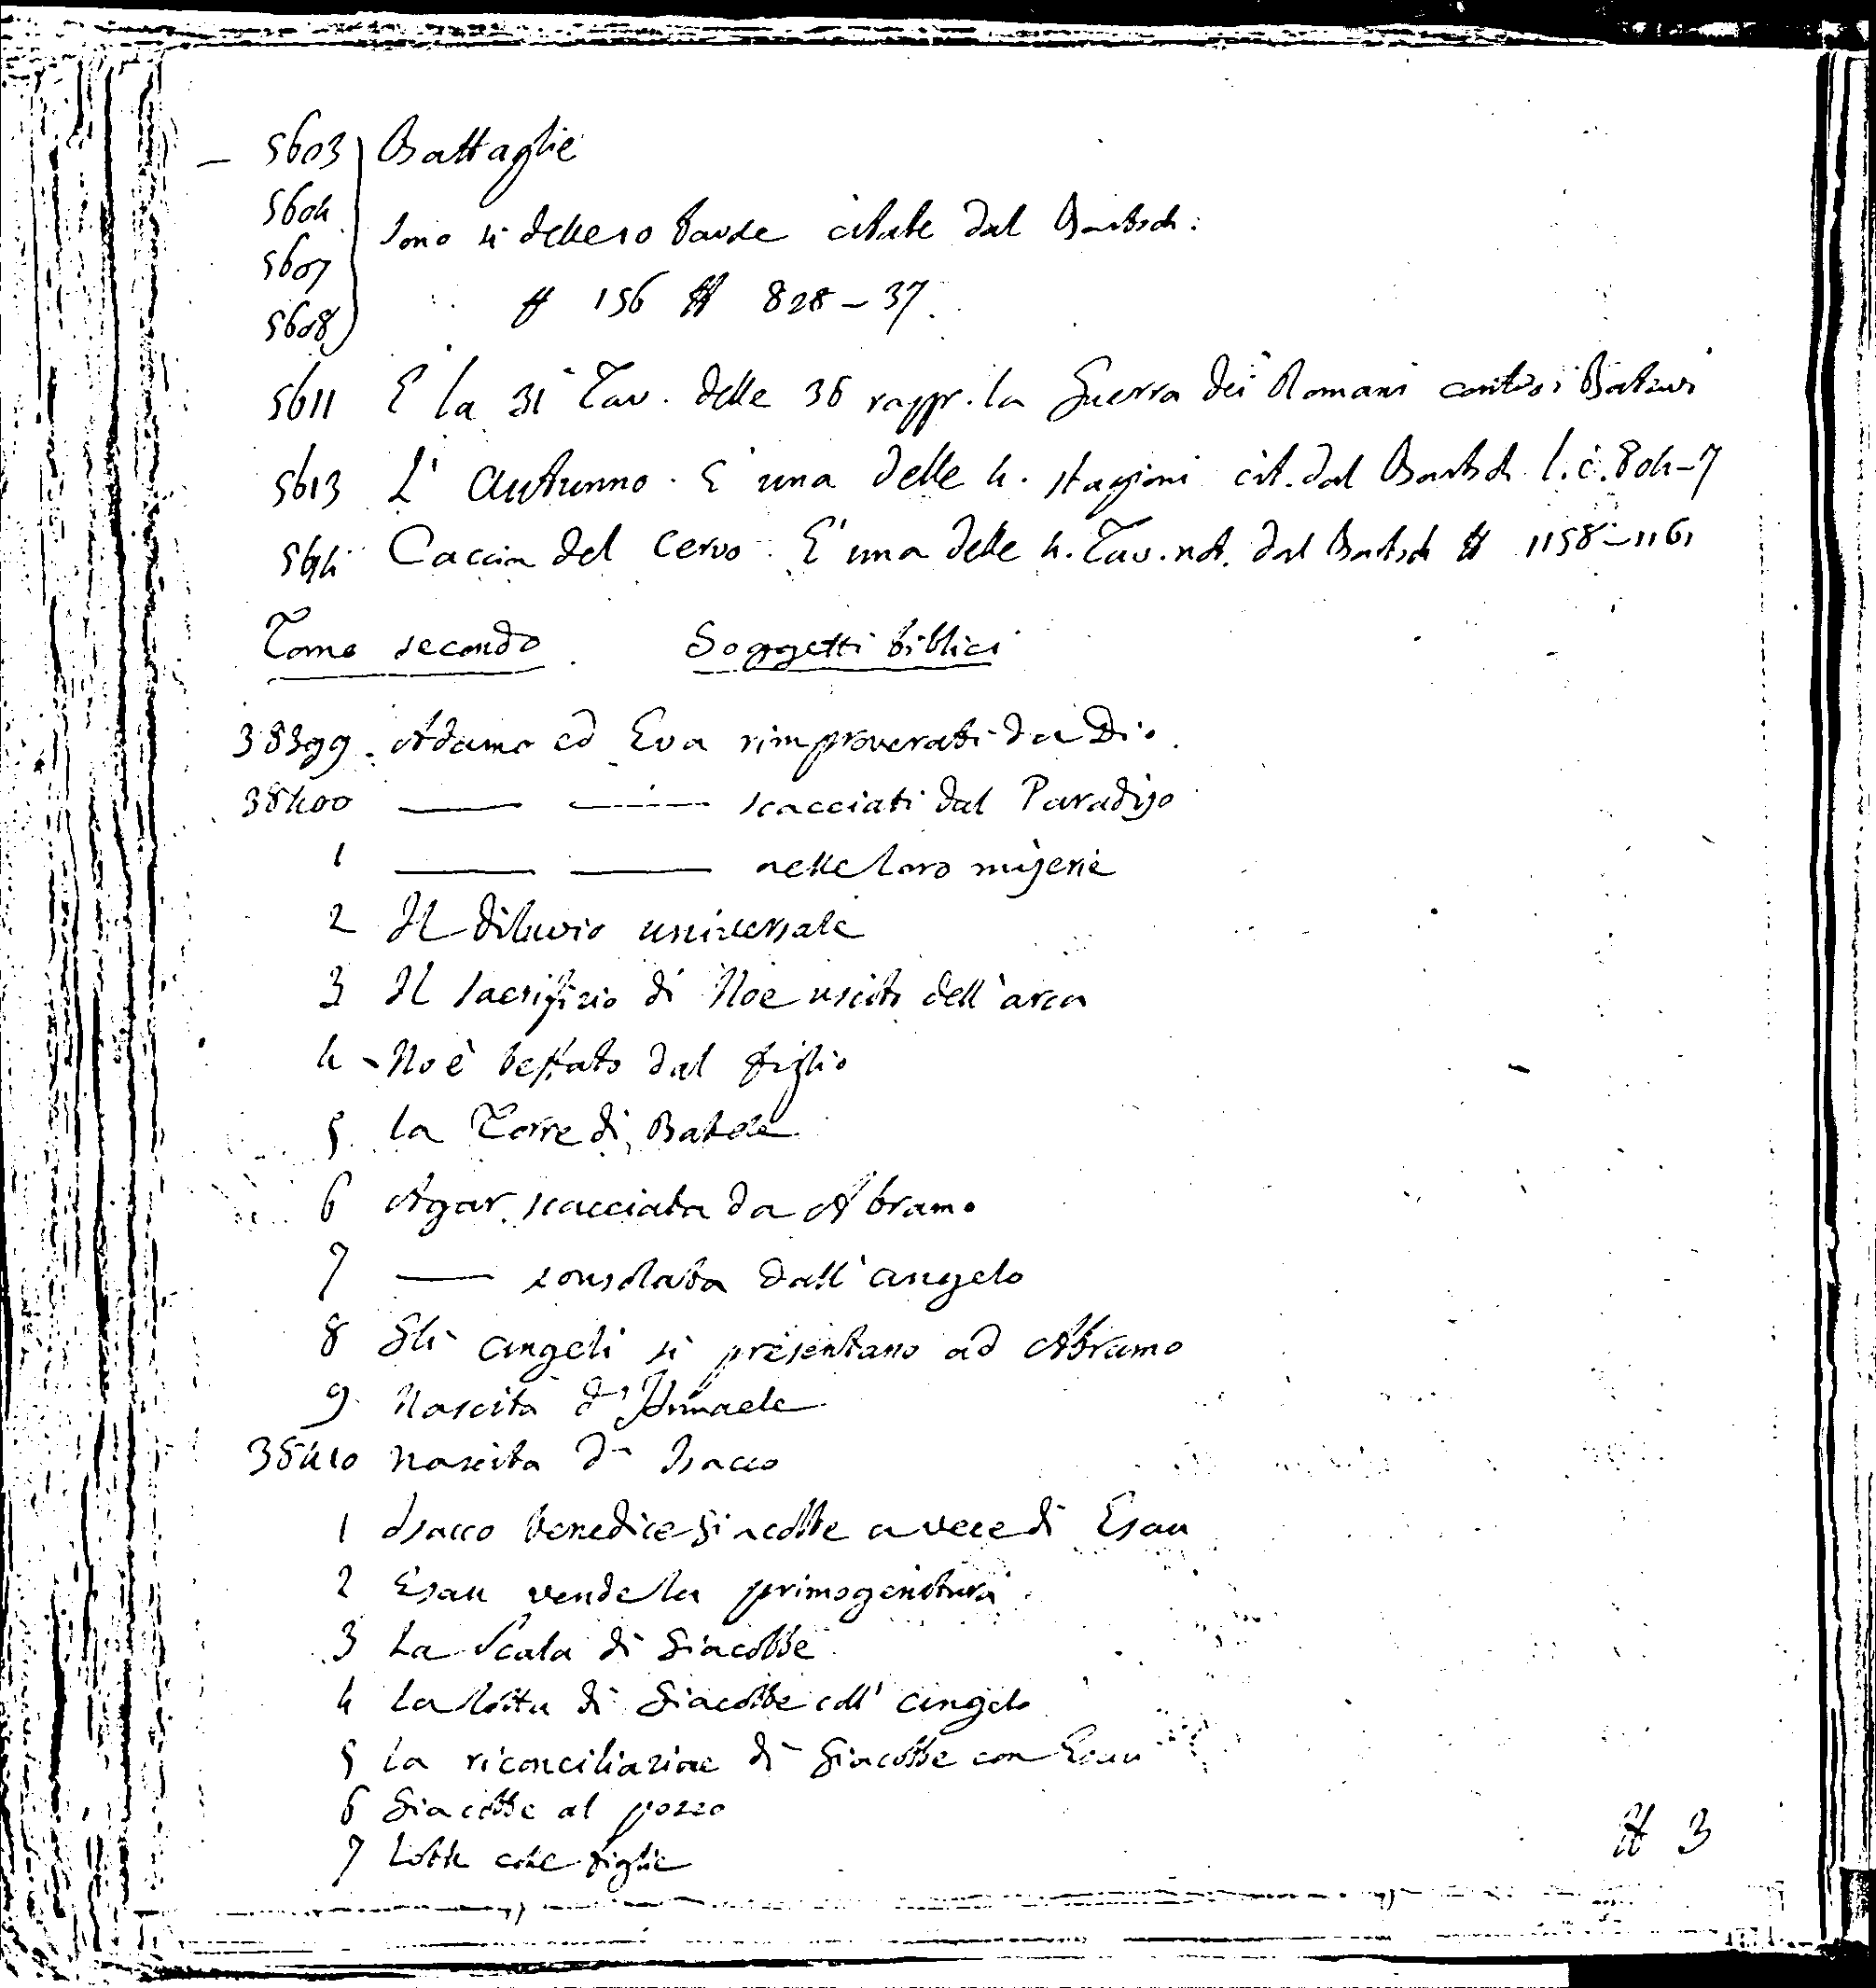 — 5603 Battaglie
5604
Sono 4 delle 10 tavole citate dal Bartsch:
5607
# 156 # 828–37.
5608
5611 È la 31ª Tav. delle 36 rappr. la Guerra dei Romani contro i Batavi
5613 L'Autunno. È una delle 4. stagioni cit. dal Bartsch l.c. 804–7
5614 Caccia del cervo. È una delle 4. Tav. not. dal Bartsch # 1158–1161
Tomo secondo. Soggetti biblici
38399. Adamo ed Eva rimproverati da Dio.
38400 —— —— scacciati dal Paradiso
1 —— —— nelle loro miserie
2 Il diluvio universale
3 Il sacrifizio di Noe uscito dell'arca
4 - Noè beffato dal figlio
5. la Torre di Babele
6 Agar scacciata da Abramo
7 —— consolata dall'angelo
8 Gli angeli si presentano ad Abramo
9. Nascita d'Ismaele
38410 Nascita d' Isacco
1 Isacco benedice Giacobbe a vece di Esau
2 Esau vende la primogenitura
3 La Scala di Giacobbe
4 La lotta di Giacobbe coll' angelo
5 La riconciliazione di Giacobbe con Esau
6 Giacobbe al pozzo
7 Loth colle figlie
# 3